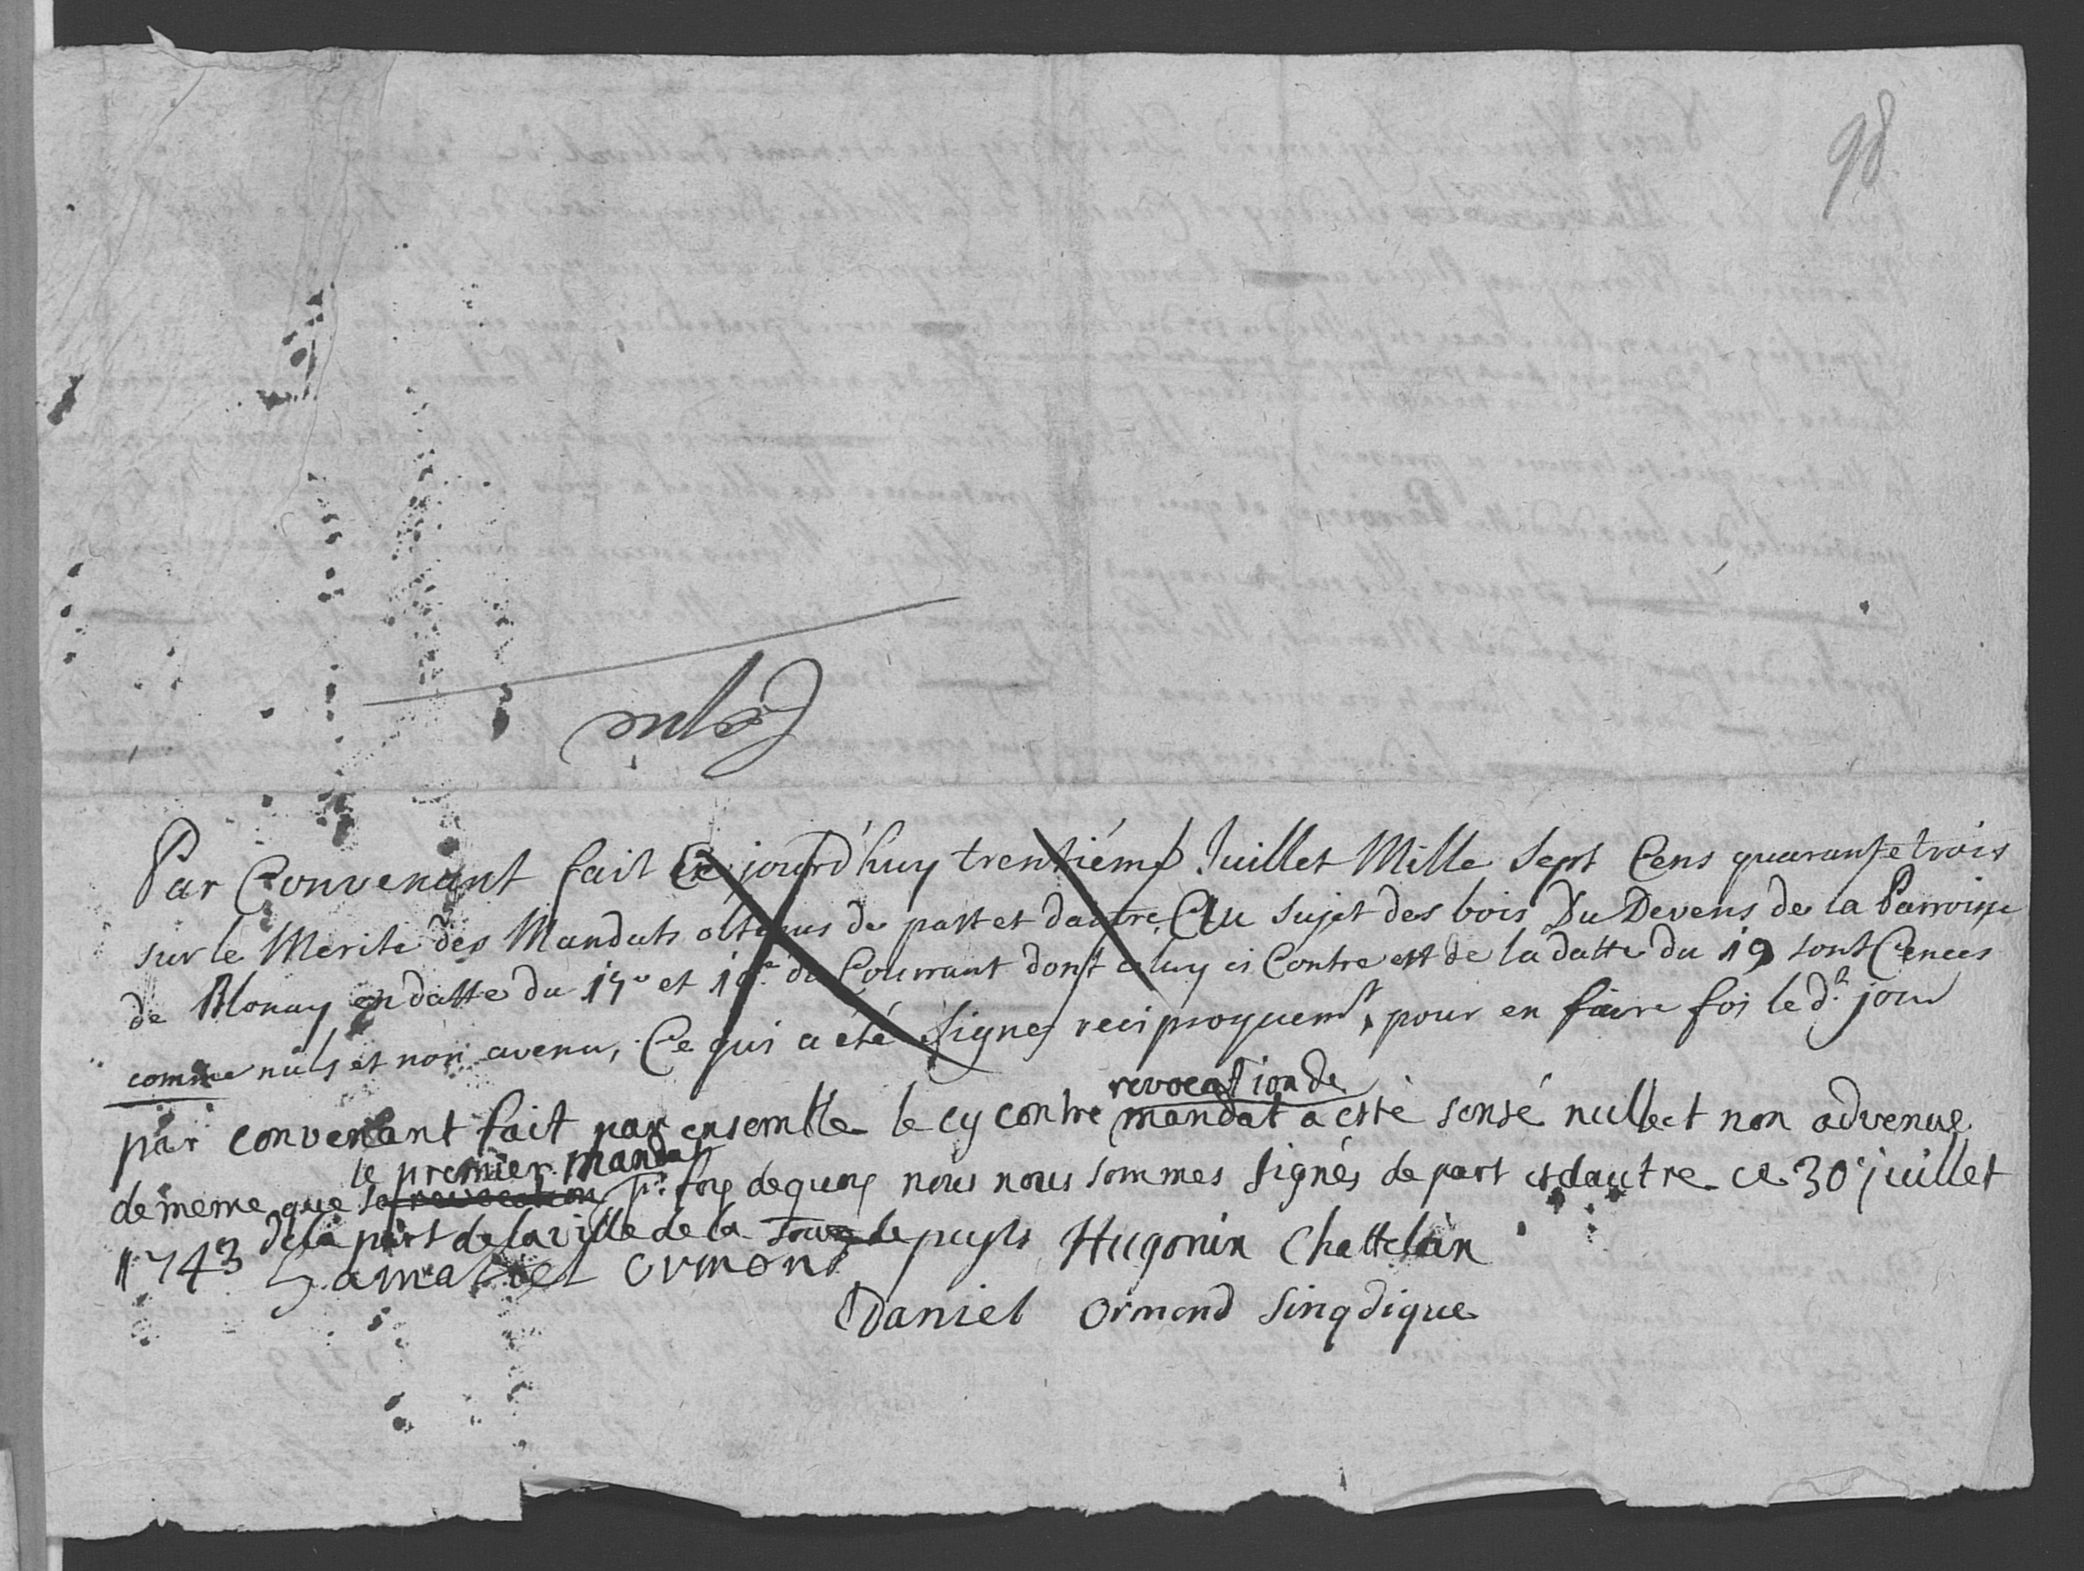 98
Par Convenant fait Ce jourd'huy trentiéme Juillet Mille Sept Cens quarante trois
sur le Merite des Mandats obtenus de part et dautre, Au sujet des bois Du Devens de la Parroisse
de Blonay en datte du 17e et 19e du Courrant dont celuy ci Contre est de la datte du 19 sont Cences
comme nuls et non avenu, Ce qui a été Signé reciproquemt, pour en faire foi le dt. jour
par convenant fait par ensemble le cy contre revocation de mandat a esté sensé null et non advenue
de meme que sa revocation le premier mandat pr. foy de quoy nous nous sommes signés de part et dautre ce 30e juillet
1743 de la part de la ville de la
Hugonin Chattelain
Ormond
Daniel Ormond Sinqdique